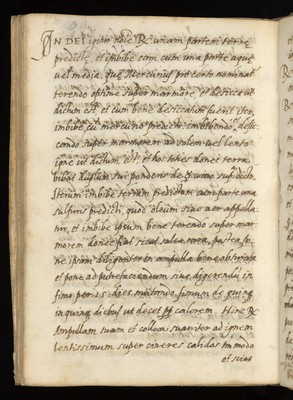 IN DEI igitur noie Rc unam partem terrę
predictę, et imbibe eam cum una parte aquę
vel media, quę Mercurius pro certo nominat
terendo optime super marmore, et desicca ut
dictum est, et cum bene desiccata fuerit iterum
imbibe cũ mercurio predicto imbibendo, desic
cando super marmorem ad solem vel lento
igne ut dictum est, et hoc toties donec terra
bibat sui ponderis de supradicto
Iterum imbibe terram predictam cum parte una
sulphuris predicti, quod oleum sive aer appella
tur, et imbibe ipsum bene terendo super mar
morem donec sicut postea po
ne ipsam diligenter in ampulla bene obturata
et pone ad putrefaciendum sive digerendũ in
fimo per dies mutando fimum de quinq
in quinq diebus ut decet calorem. Hinc Rc
Ampullam tuam et colloca suaviter ad ignem
lentissimum super cineres calidos in modo
et scias